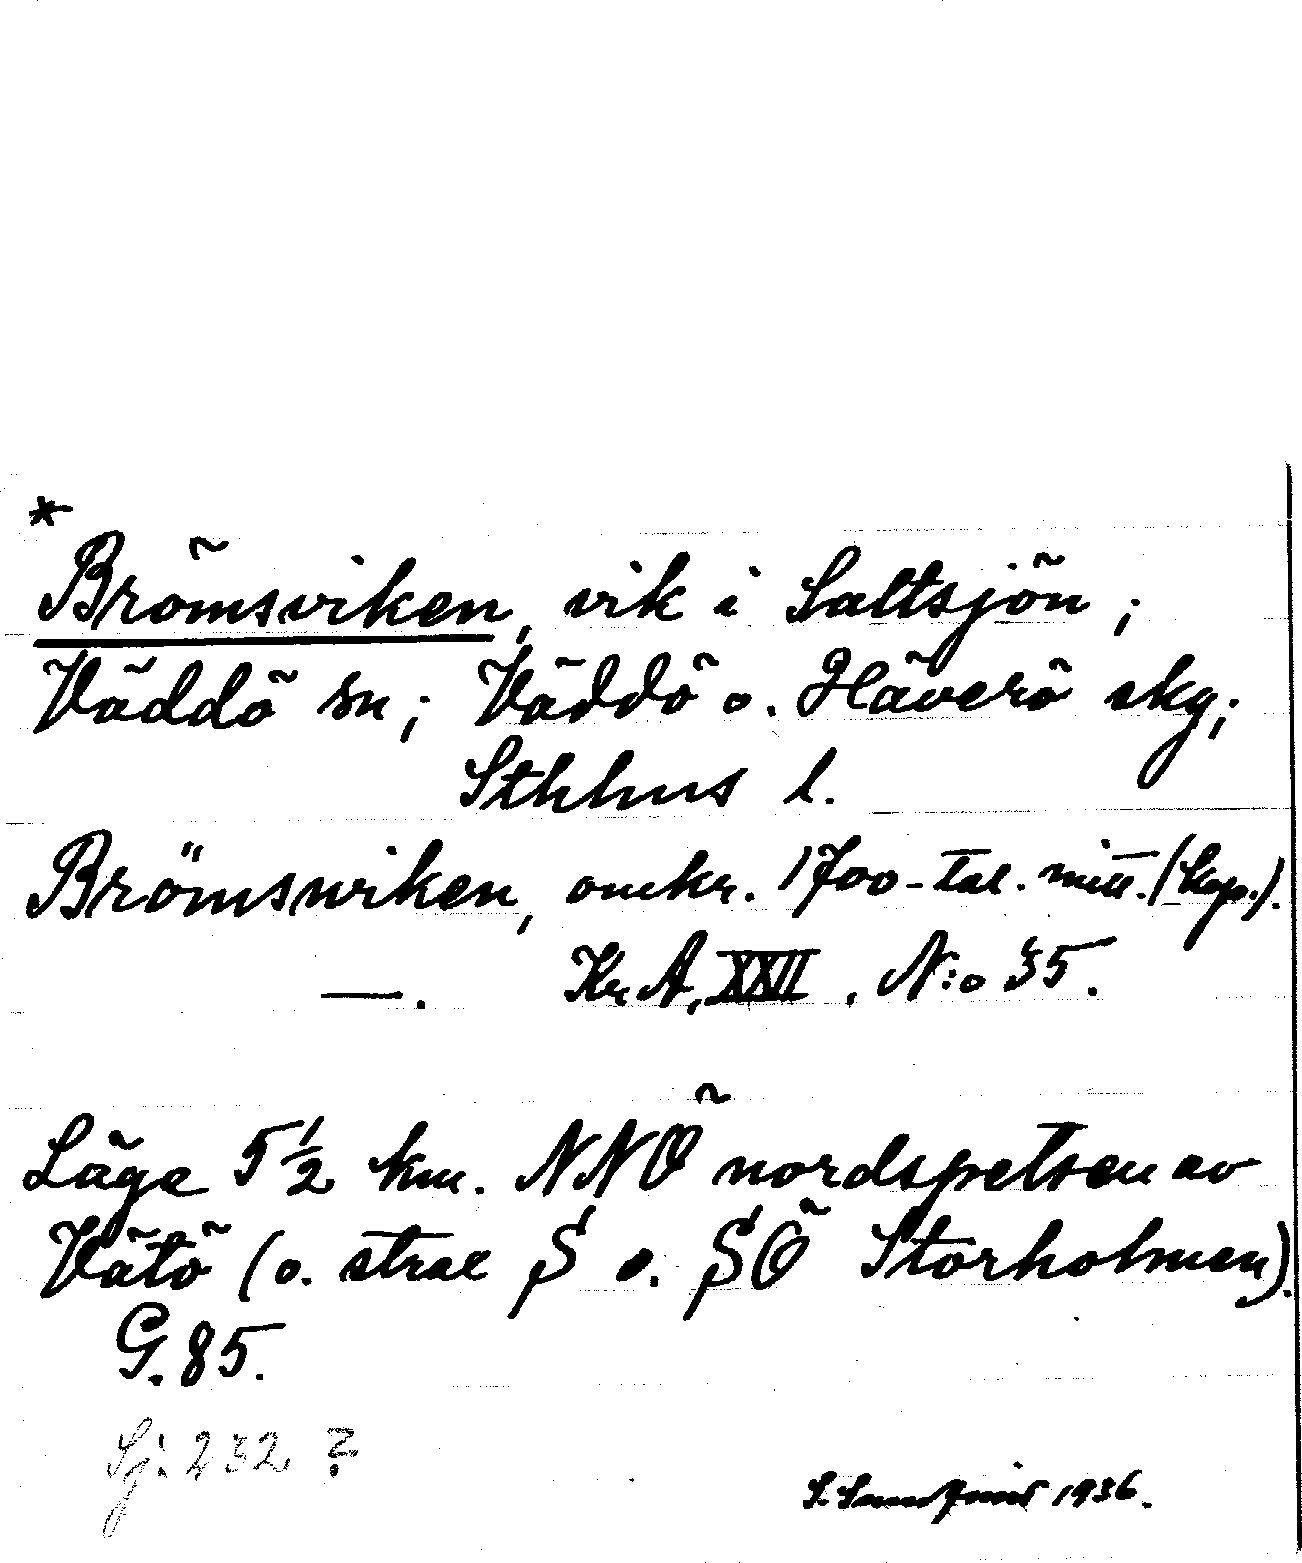 *
Brömsviken, vik i Saltsjön;
Väddö sn; Väddö o. Häverö skg;
Sthlms l.
Brömswiken, omkr. 1700-tal. mitt. (kop.).
—. Kr. A, XXII, N:o 35.
Läge 5 1/2 km. NNÖ nordspetsen av
Vätö (o. strax S o. SÖ Storholmen).
G. 85.
Sj. 232 ?
S. Sundqvist 1936.